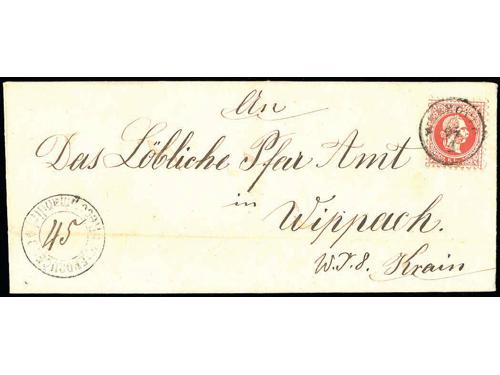 An
Das Löbliche Pfar Amt
in
Wippach.
Krain
45